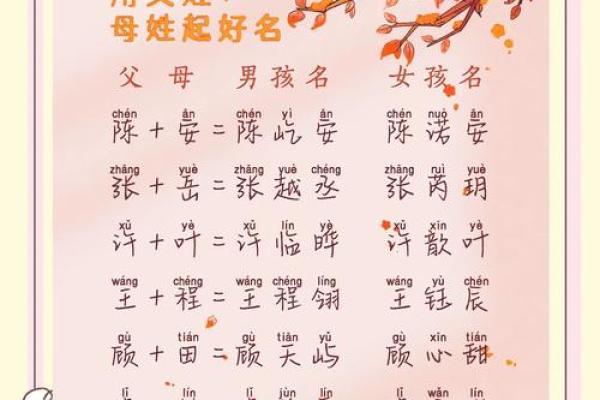 母姓起好名
父 母 男孩名 女孩名
chén ān chén yì ān chén nuò ān
陈+安=陈屹安 陈诺安
zhāng yuè zhāng yuè chéng zhāng ruì yuè
张+岳=张越丞 张芮玥
xǔ yè xǔ lín yè xǔ xīn yè
许+叶=许临晔 许歆叶
wáng chéng wáng chéng líng wáng yù chén
王+程=王程翎 王钰辰
gù tián gù tiān yǔ gù xīn tián
顾+田=顾天屿 顾心甜
lǐ lín lǐ jùn lǐ wǎn lín